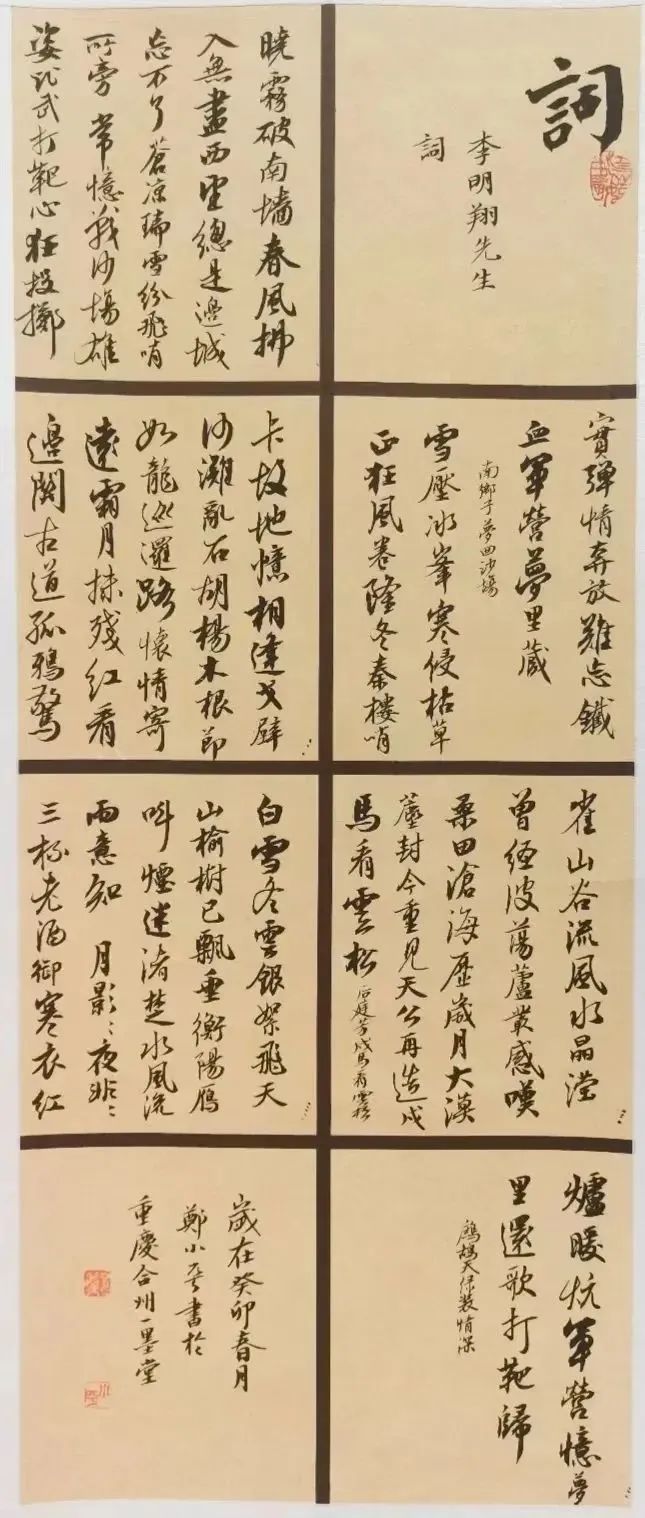 詞
李明翔先生
詞
曉霧破南墻春風拂
入無盡西望總是邊城
忘不了蒼凉瑞雪紛飛哨
所旁 常憶戰沙場雄
姿比武打靶心狂投擲
實彈情奔放難忘鐵
血軍營夢里藏
南鄉子夢回沙場
雪壓冰峯寒侵枯草
正狂風卷隆冬秦樓哨
卡故地憶相逢戈壁
沙灘亂石胡楊木根節
如龍巡邏路懷情寄
遠霜月抹殘紅看
邊關古道孤鴉驚
雀山谷流風水晶瀅
曾經波蕩蘆叢感嘆
桑田滄海歷歲月大漠
塵封今重見天公再造戍
馬看雲松
后庭芳戍馬看雲松
白雪冬雲銀絮飛天
山榆樹已飄垂衡陽雁
叫煙迷渚楚水風流
雨意知 月影〻夜非〻
三杯老酒御寒衣紅
爐暖炕軍營憶夢
里還歌打靶歸
鷓鴣天绿裝情深
歲在癸卯春月
鄭小書於
重慶合州一墨堂